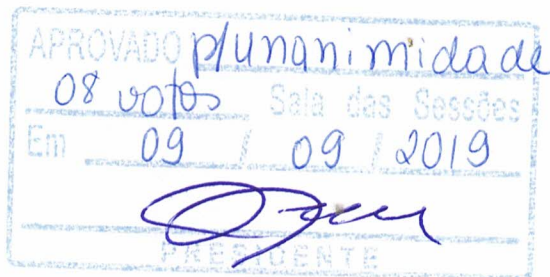 APROVADO p/unanimidade
08 votos Sala das Sessões
Em 09 / 09 / 2019
PRESIDENTE